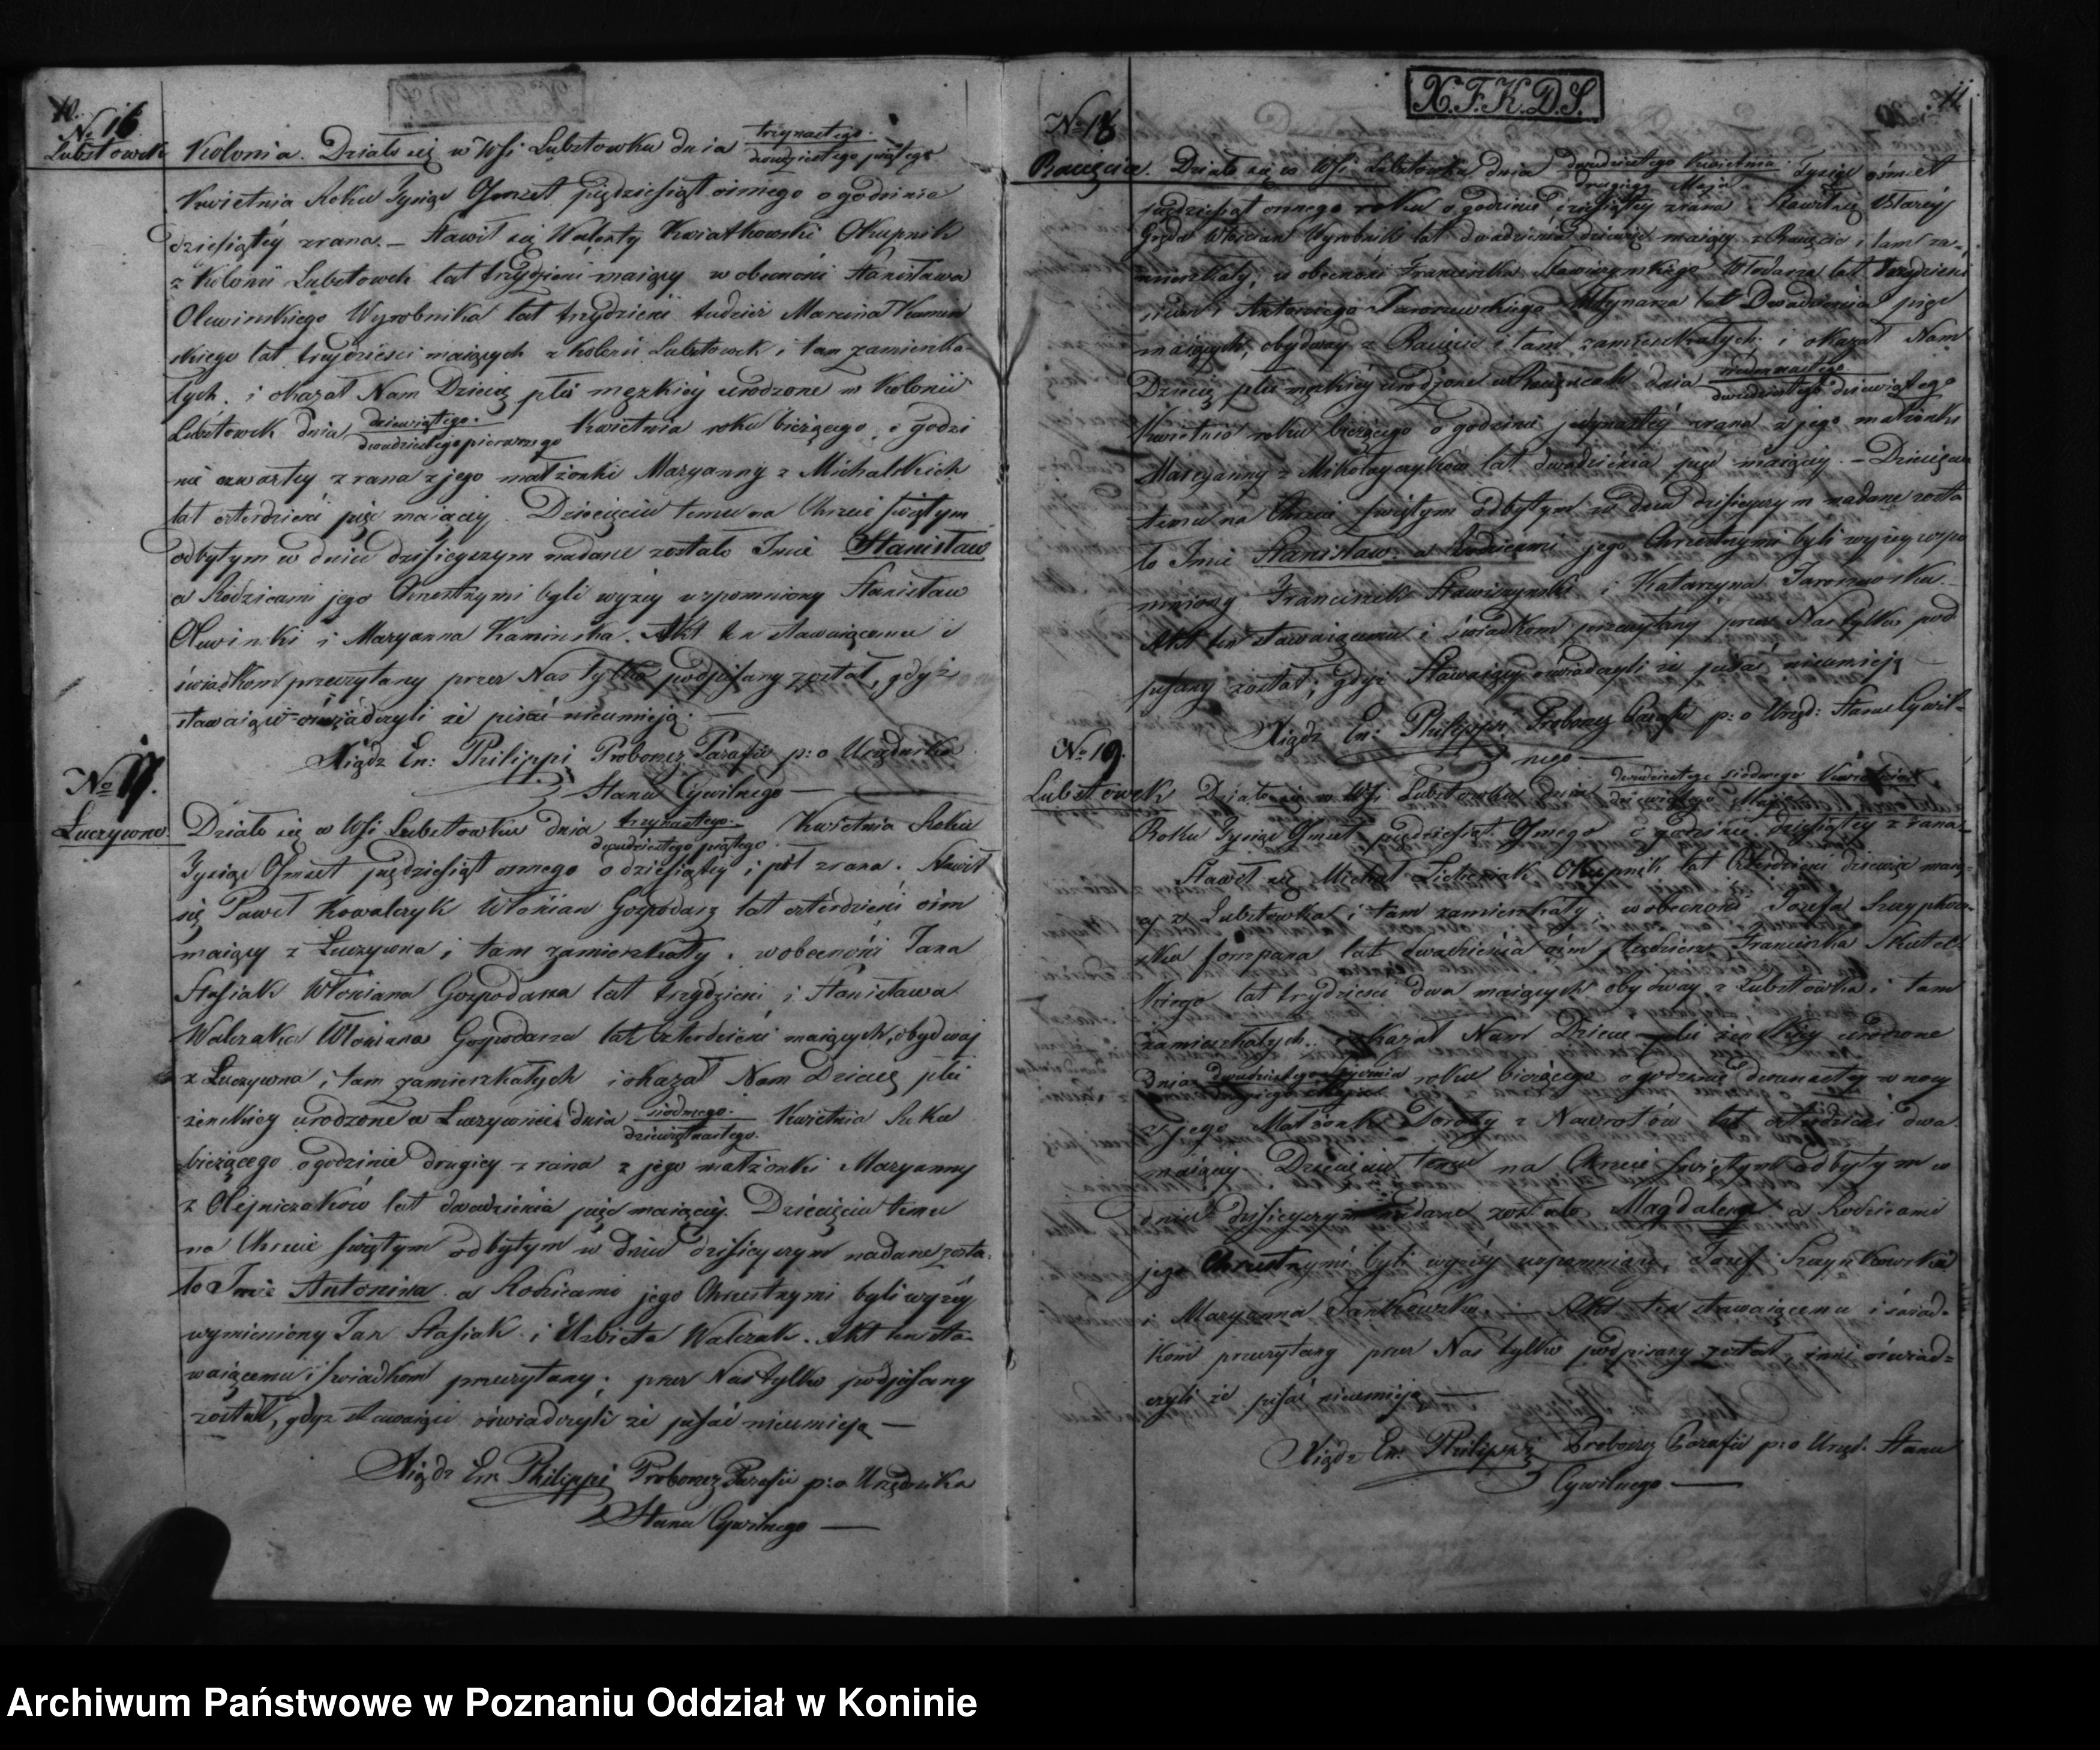 10.
No 16
Lubstowek Kolonia. Działo się w Wsi Lubstowku dnia trzynastego
dwudziestego piątego
Kwietnia Roku Tysiąc Ośmset pięćdziesiąt ósmego o godzinie
dziesiątej zrana. – Stawił się Walenty Kwiatkowski Okupnik
z Kolonii Lubstowek lat trzydzieści maiący w obecności Stanisława
Olewinskiego Wyrobnika lat trzydzieści tudzież Marcina Kamin
skiego lat trzydzieści maiących z Kolonii Lubstowek i tam zamieszka-
łych. i okazał Nam Dziecię płci męzkiéj urodzone w Kolonii
Lubstowek dnia dziewiątego Kwietnia roku bieżącego o godzi
dwudziestego pierwszego
nie czwartej z rana z jego małżonki Maryanny z Michalskich
lat czterdzieści pięć maiącéj. Dziecięciu temu na Chrzcie świętym
odbytym w dniu dzisieyszym nadane zostało Imie Stanisław
a Rodzicami jego Chrzestnymi byli wyżéj wspomniony Stanisław
Olewinski i Maryanna Kaminska. Akt ten stawaiącemu i
świadkom przeczytany przez Nas tylko podpisany został, gdyż
stawaiący oświadczyli że pisać nieumieją. –
Xiądz Em: Philippi Proboszcz Parafii p: o Urzędnika
Stanu Cywilnego –
No 17.
Łuczywno. Działo się w Wsi Lubstowku dnia trzynastego Kwietnia Roku
dwudziestego piątego
Tysiąc Ośmset pięćdziesiąt osmego o dziesiątej i pół zrana. Stawił
się Paweł Kowalczyk Włościan Gospodarz lat czterdzieści ośm
maiący z Łuczywna i tam zamieszkały, w obecności Jana
Stasiak Włościana Gospodarza lat trzydzieści i Stanisława
Walczaka Włościana Gospodarza lat czterdzieści maiących, obydwaj
z Łuczywna i tam zamieszkałych i okazał Nam Dziecię płci
żenskiej urodzone w Łuczywnie dnia siódmego Kwietnia Roku
dziewiętnastego
bieżącego o godzinie drugiej z rana z jego małżonki Maryanny
z Olejniczaków lat dwadzieścia pięć maiącéj. Dziecięciu temu
na Chrzcie świętym odbytym w dniu dzisieyszym nadane zosta-
ło Imie Antonina a Rodzicami jego Chrzestnymi byli wyżéj
wymieniony Jan Stasiak i Elzbieta Walczak. Akt ten sta-
waiącemu i świadkom przeczytany, przez Nas tylko podpisany
został, gdyż stawaiący oświadczyli że pisać nieumieją –
Xiądz Em. Philippi Proboszcz Parafii p: o Urzędnika
Stanu Cywilnego –
X.F.K.D.S.
11.
No 18
Racięcia. Działo się w Wsi Lubstowku dnia dwudziestego Kwietnia Tysiąc ośmset
drugiego Maja
pięćdziesiąt osmego roku o godzinie dziesiątej zrana. Stawił się
Włościan Wyrobnik lat dwadzieścia dziewięć maiący z Racięcia i tam za-
mieszkały, w obecności Franciszka Stawiszynskiego Włodarza lat trzydzieści
i Antoniego Jaroszewskiego Młynarza lat Dwadzieścia pięć
maiących, obydwaj z Racięcia i tam zamieszkałych i okazał Nam
Dziecię płci męzkiéj urodzone w dnia
dwudziestego dziewiątego
Kwietnia roku bieżącego o godzinie jedynastej zrana z jego małżonki
Maryanny z Mikołajczyków lat dwadzieścia pięć maiącéj. – Dziecięciu
temu na Chrzcie świętym odbytym w dniu dzisieyszym nadane zosta
ło Imie Stanisław a Rodzicami jego Chrzestnymi byli wyżej wspo
mniony Franciszek Stawiszynski i Katarzyna Jaroszewska
Akt ten stawaiącemu i świadkom przeczytany przez Nas tylko pod
pisany został, gdyż Stawaiący oświadczyli że pisać nieumieją
Xiądz Em: Philippi Proboszcz Parafii p: o Urzęd: Stanu Cywil-
nego –
No 19.
Lubstowek Działo się w Wsi Lubstowku dnia dwudziestego siódmego Kwietnia
dziewiątego Maja
Roku Tysiąc Ośmset pięćdziesiąt Osmego o godzinie dziesiątej z rana
Stawił się Michał Okupnik lat Czterdzieści dziewięć maią-
cy z Lubstowka i tam zamieszkały, w obecności Józefa Szczypkow-
ska fornżana lat dwadzieścia ośm, tudzież Franciszka Skutel-
skiego lat trzydzieści dwa maiących obydway z Lubstowka i tam
zamieszkałych. okazał Nam Dziecię płci żenskiéj urodzone
dnia roku bieżącego o godzinie dwunastej w nocy
z jego Małżonki Doroty z Nawrotów lat czterdzieści dwa
maiącéj. Dziecięciu temu na Chrzcie świętym odbytym w
dniu dzisieyszym nadane zostało Magdalena a Rodzicami
jego Chrzestnymi byli wyżéj wspomniony Józef
i Maryanna Jankowska. – Akt ten stawaiącemu i świad-
kom przeczytany przez Nas tylko podpisany został, inni oświad-
czyli że pisać nieumieją –
Xiądz Em: Philippi Proboszcz Parafii p: o Urzęd. Stanu
Cywilnego –
Archiwum Państwowe w Poznaniu Oddział w Koninie